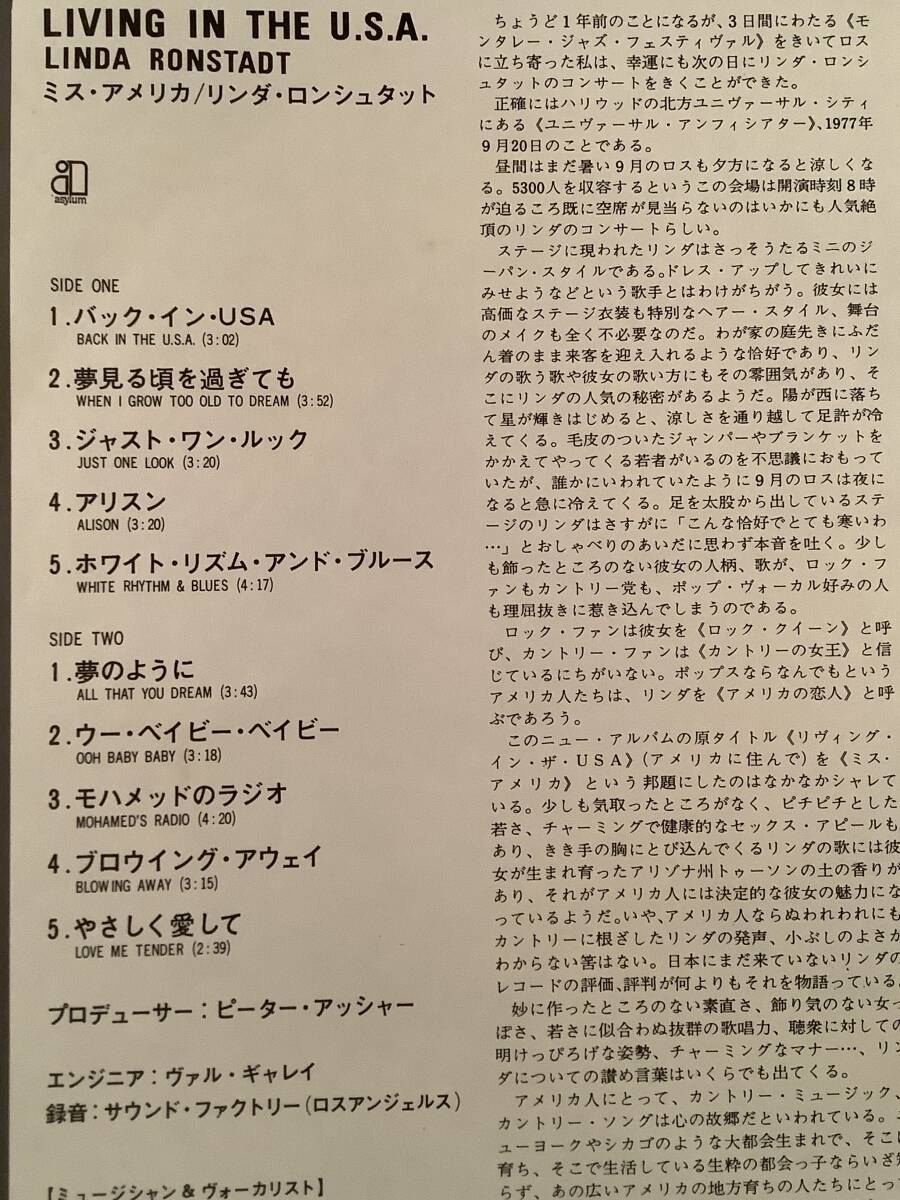 LIVING IN THE U.S.A.
LINDA RONSTADT
ミス・アメリカ/リンダ・ロンシュタット
asylum
SIDE ONE
1.バック・イン・USA
BACK IN THE U.S.A. (3:02)
2.夢見る頃を過ぎても
WHEN I GROW TOO OLD TO DREAM (3:52)
3.ジャスト・ワン・ルック
JUST ONE LOOK (3:20)
4.アリスン
ALISON (3:20)
5.ホワイト・リズム・アンド・ブルース
WHITE RHYTHM & BLUES (4:17)
SIDE TWO
1.夢のように
ALL THAT YOU DREAM (3:43)
2.ウー・ベイビー・ベイビー
OOH BABY BABY (3:18)
3.モハメッドのラジオ
MOHAMED'S RADIO (4:20)
4.ブロウイング・アウェイ
BLOWING AWAY (3:15)
5.やさしく愛して
LOVE ME TENDER (2:39)
プロデューサー:ピーター・アッシャー
エンジニア:ヴァル・ギャレイ
録音:サウンド・ファクトリー(ロスアンジェルス)
【ミュージシャン&ヴォーカリスト】
ちょうど1年前のことになるが、3日間にわたる《モ
ンタレー・ジャズ・フェスティヴァル》をきいてロス
に立ち寄った私は、幸運にも次の日にリンダ・ロンシ
ュタットのコンサートをきくことができた。
正確にはハリウッドの北方ユニヴァーサル・シティ
にある《ユニヴァーサル・アンフィシアター》、1977年
9月20日のことである。
昼間はまだ暑い9月のロスも夕方になると涼しくな
る。5300人を収容するというこの会場は開演時刻8時
が迫るころ既に空席が見当らないのはいかにも人気絶
頂のリンダのコンサートらしい。
ステージに現われたリンダはさっそうたるミニのジ
ーパン・スタイルである。ドレス・アップしてきれいに
みせようなどという歌手とはわけがちがう。彼女には
高価なステージ衣装も特別なヘアー・スタイル、舞台
のメイクも全く不必要なのだ。わが家の庭先きにふだ
ん着のまま来客を迎え入れるような恰好であり、リン
ダの歌う歌や彼女の歌い方にもその雰囲気があり、そ
こにリンダの人気の秘密があるようだ。陽が西に落ち
て星が輝きはじめると、涼しさを通り越して足許が冷
えてくる。毛皮のついたジャンパーやブランケットを
かかえてやってくる若者がいるのを不思議におもって
いたが、誰かにいわれていたように9月のロスは夜に
なると急に冷えてくる。足を太股から出しているステ
ージのリンダはさすがに「こんな恰好でとても寒いわ
…」とおしゃべりのあいだに思わず本音を吐く。少し
も飾ったところのない彼女の人柄、歌が、ロック・フ
ァンもカントリー党も、ポップ・ヴォーカル好みの人
も理屈抜きに惹き込んでしまうのである。
ロック・ファンは彼女を《ロック・クイーン》と呼
び、カントリー・ファンは《カントリーの女王》と信
じているにちがいない。ポップスならなんでもという
アメリカ人たちは、リンダを《アメリカの恋人》と呼
ぶであろう。
このニュー・アルバムの原タイトル《リヴィング・
イン・ザ・USA》(アメリカに住んで)を《ミス・
アメリカ》という邦題にしたのはなかなかシャレて
いる。少しも気取ったところがなく、ピチピチとした
若さ、チャーミングで健康的なセックス・アピールも
あり、きき手の胸にとび込んでくるリンダの歌には彼
女が生まれ育ったアリゾナ州トゥーソンの土の香りが
あり、それがアメリカ人には決定的な彼女の魅力にな
っているようだ。いや、アメリカ人ならぬわれわれにも
カントリーに根ざしたリンダの発声、小ぶしのよさが
わからない筈はない。日本にまだ来ていないリンダの
レコードの評価、評判が何よりもそれを物語っている。
妙に作ったところのない素直さ、飾り気のない女っ
ぽさ、若さに似合わぬ抜群の歌唱力、聴衆に対しての
明けっぴろげな姿勢、チャーミングなマナー…、リン
ダについての讃め言葉はいくらでも出てくる。
アメリカ人にとって、カントリー・ミュージック、
カントリー・ソングは心の故郷だといわれている。ニ
ューヨークやシカゴのような大都会生まれで、そこに
育ち、そこで生活している生粋の都会っ子ならいざ知
らず、あの広いアメリカの地方育ちの人たちにとって